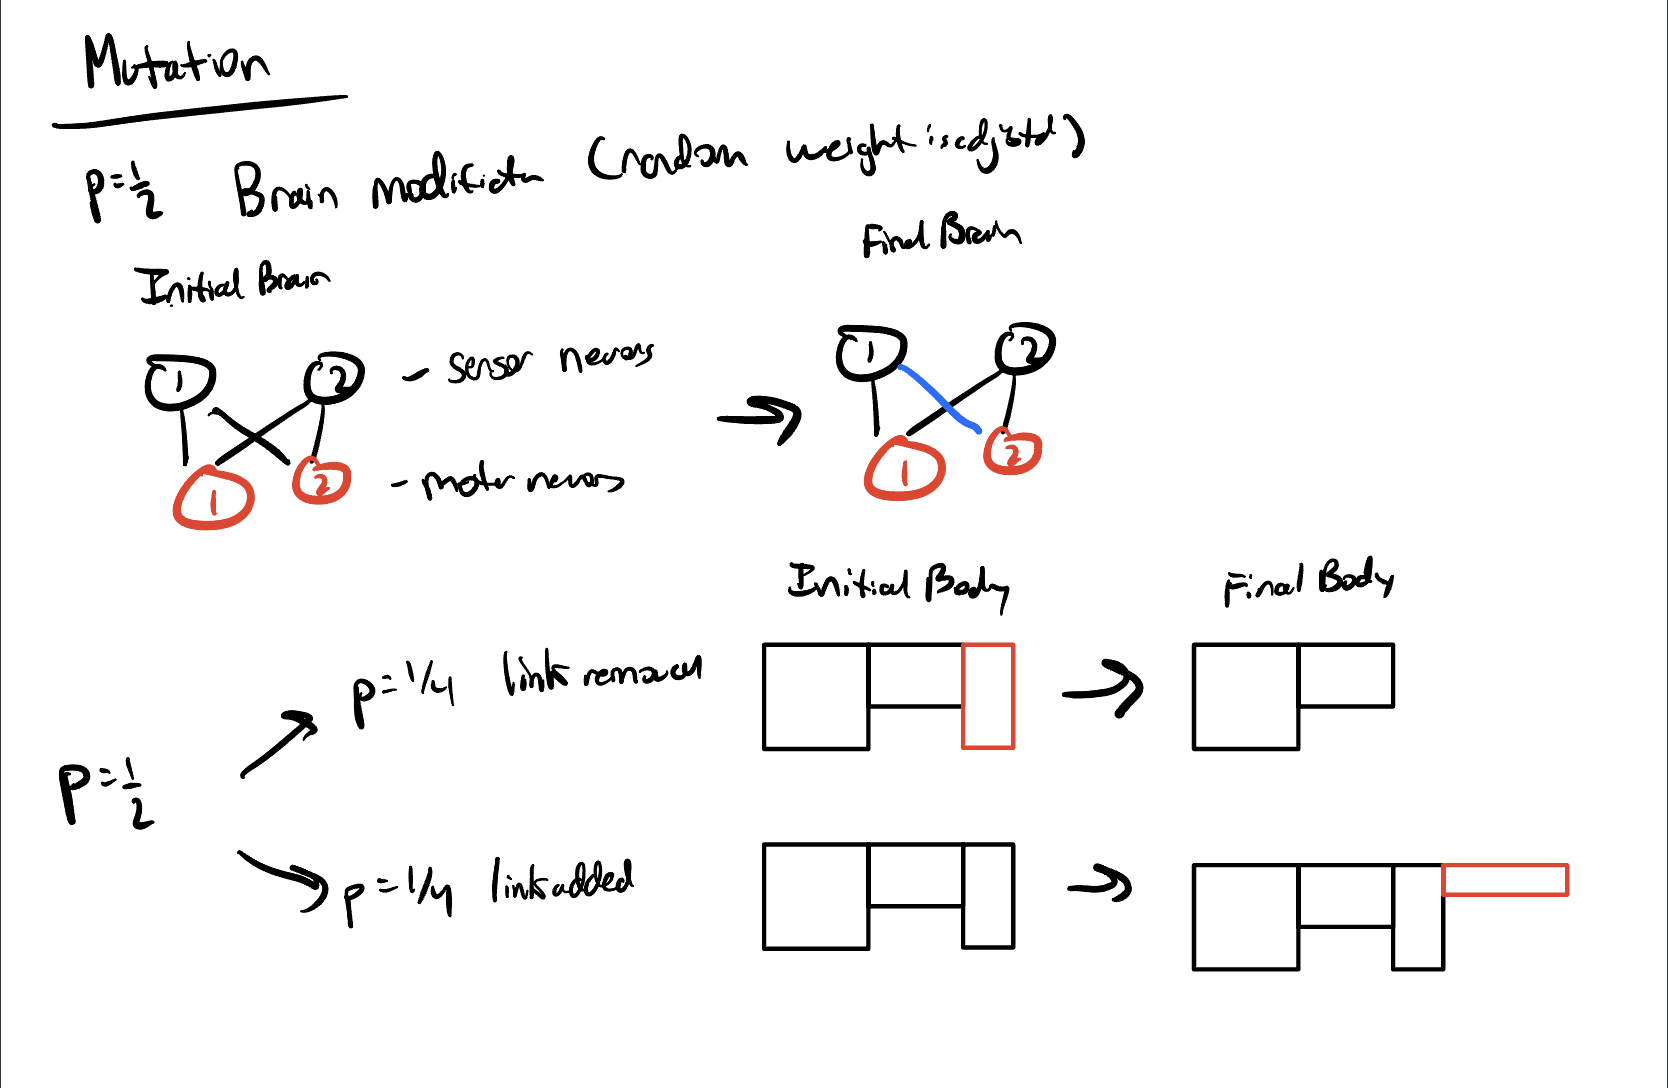 Mutation
p=1/2 Brain modificatn (random weight is adjstd)
Final Brain
Initial Brain
1 2 - sensor nevors
1 2
1 2 - motor nevors
1 2
Initial Body Final Body
p=1/4 link removed
p=1/2
p=1/4 link added